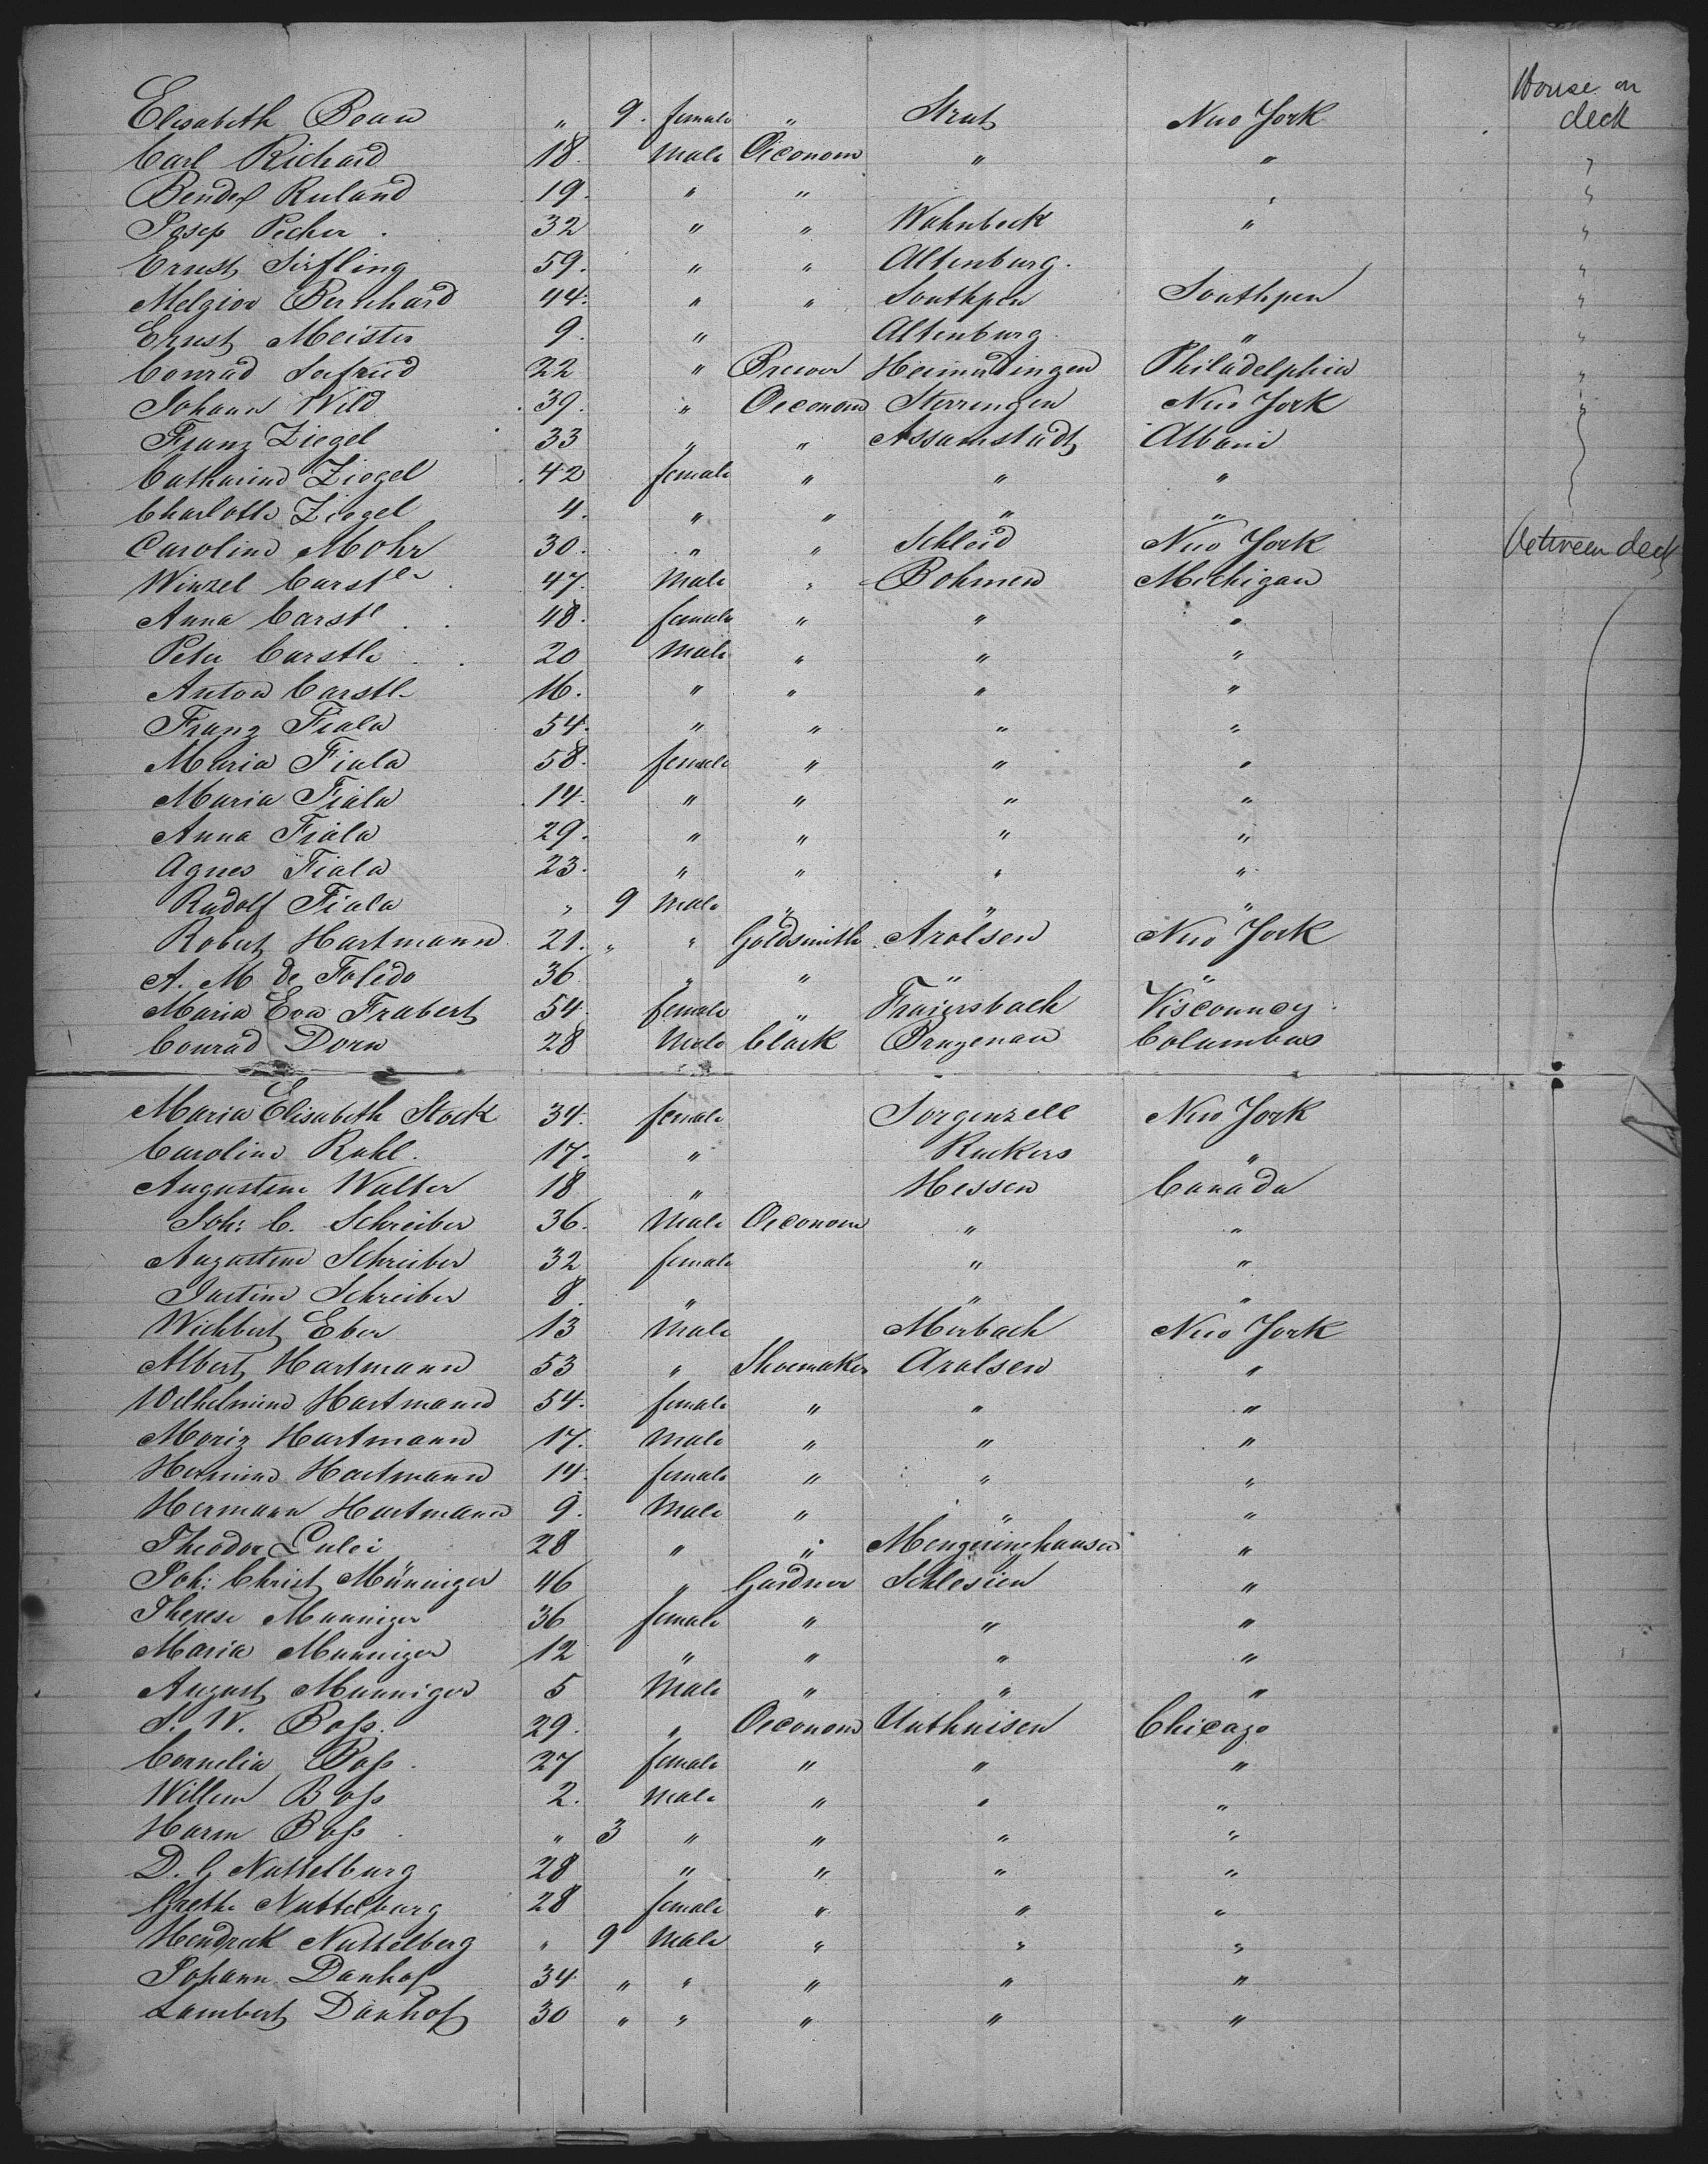 Elisabeth Braun " 9. female " Strut New York House on deck
Carl Richard 18. Male Oeconom " " "
Bender Ruland 19. " " " "
Josep Pecher 32 " " Wahnbeck " "
Ernst Sirfling 59. " " Altenburg. "
Melgior Bernhard 44. " " Southpen Southpen "
Ernst Meister 9. " Altenburg " "
Conrad Seefried 22 " Brewer Heimerdingen Philadelphia "
Johann Wild 39. " Oeconom Sterrengen New York "
Franz Ziegel 33 " " Assamstadt Albani
Catharina Ziegel 42 female " " "
Charlotte Ziegel 4. " " " "
Carolina Mohr 30. " " Schleid New York between deck
Winzel Carstle 47. Male " Bohmen Michigan
Anna Carstl 48. female " " "
Peter Carstle 20 Male " " "
Anton Carstle 16. " " " "
Franz Fiala 54. " " " "
Maria Fiala 58. female " " "
Maria Fiala 14. " " " "
Anna Fiala 29. " " " "
Agnes Fiala 23. " " " "
Rudolf Fiala " 9 Male " " "
Robert Hartmann 21. " " Goldsmith Arolsen New York
A. M de Toledo 36 " " " "
Maria Eva Frabert 54 female " Fraiersbach Visconncy
Conrad Dorn 28 Male Clark Bragenau Columbus
Maria Elisabeth Stock 34. female Sorgenzell New York
Carolina Ruhl. 17. " Ruckers "
Augustine Walter 18 " Hessen Canada
Joh: C. Schreiber 36. Male Oeconom " "
Augustine Schreiber 32 female " "
Justine Schreiber 8. " " "
Wichbert Eber 13 Male Merbach New York
Albert Hartmann 53 " Shoemaker Aralsen "
Wilhelmine Hartmann 54. female " " "
Moriz Hartmann 17. Male " " "
Hermine Hartmann 14. female " " "
Hermann Hartmann 9. Male " " "
Theodor Culei 28 " " Mengeringhausen "
Joh: Christ Münniger 46 " Gardner Schlesien "
Therese Munniger 36 female " " "
Maria Munniger 12 " " " "
August Munniger 5 Male " " "
S. W. Boss. 29. " Oeconom Uithuisen Chicago
Cornelia Boss. 27 female " " "
Willem Boss 2. Male " " "
Harm Boss " 3 " " " "
D. G Nuttelburg 28 " " " "
Grethe Nuttelburg 28 female " " "
Hendreck Nuttelberg " 9 Male " " "
Johann Danhof 34 " " " " "
Lambert Danhof 30 " " " " "